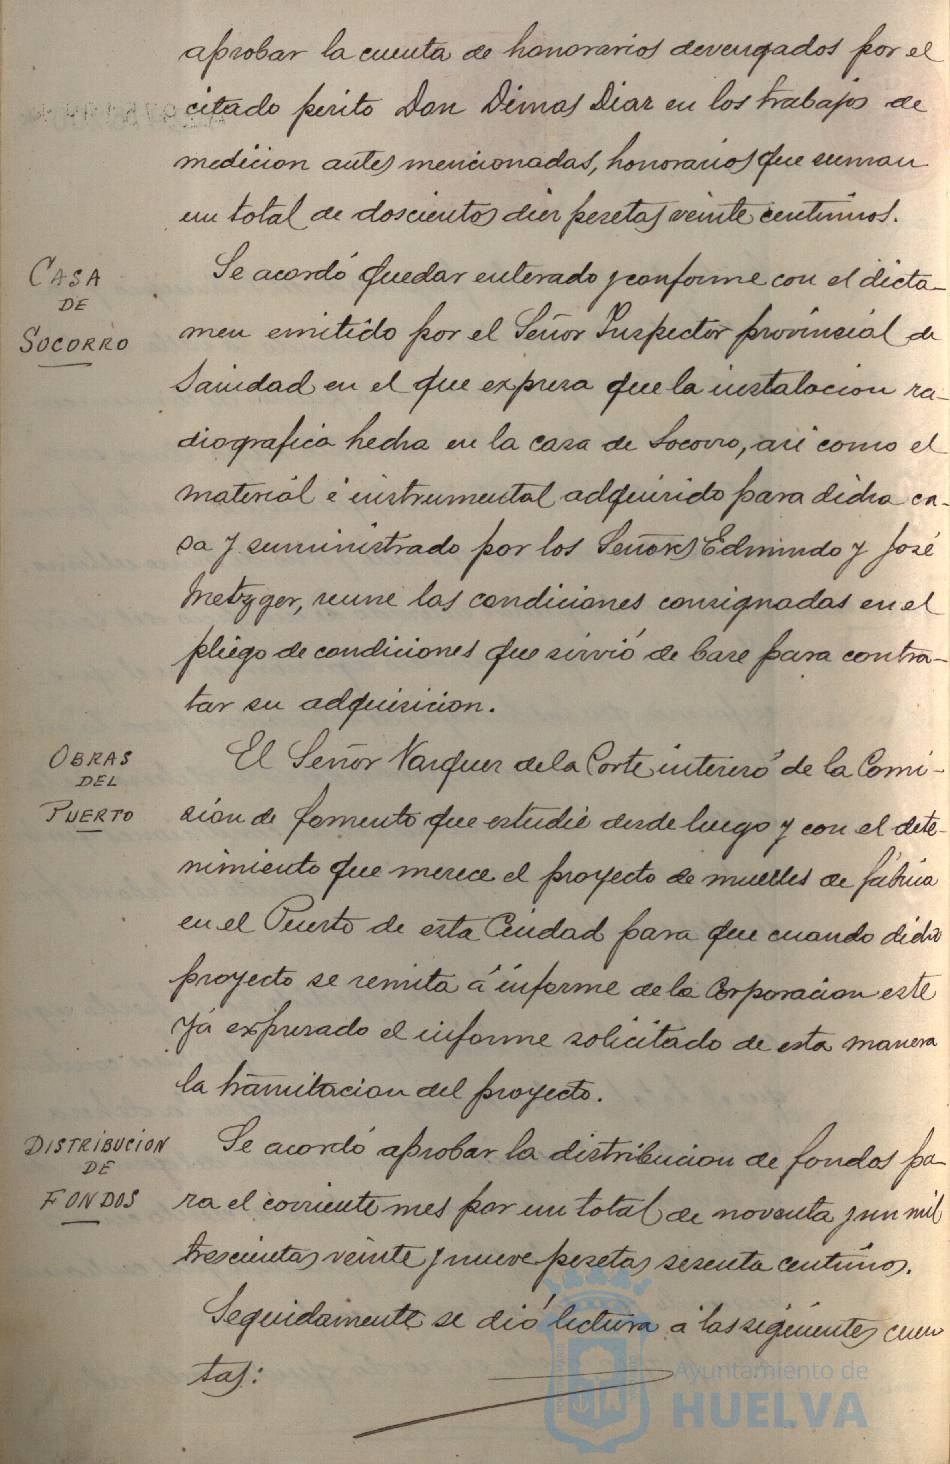 aprobar la cuenta de honorarios devengados por el
citado perito Don Dimas Diaz en los trabajos de
medicion antes mencionadas, honorarios que suman
un total de doscientos diez pesetas veinte centimos.
CASA
DE
SOCORRO
Se acordó quedar enterado y conforme con el dicta-
men emitido por el Señor Inspector provincial de
Sanidad en el que expresa que la instalacion ra-
diografica hecha en la casa de Socorro, asi como el
material é instrumental adquirido para dicha ca-
sa y suministrado por los Señores Edmundo y José
Metzger, reune las condiciones consignadas en el
pliego de condiciones que sirvió de base para contra-
tar su adquisicion.
OBRAS
DEL
PUERTO
El Señor Vazquez de la Corte interesó de la Comi-
sión de fomento que estudie desde luego y con el dete-
nimiento que merece el proyecto de muelles de fábrica
en el Puerto de esta Ciudad para que cuando dicho
proyecto se remita á informe de la Corporacion este
yá expresado el informe solicitado de esta manera
la tramitacion del proyecto.
DISTRIBUCION
DE
FONDOS
Se acordó aprobar la distribucion de fondos pa-
ra el corriente mes por un total de noventa y un mil
trescientas veinte y nueve pesetas sesenta centimos.
Seguidamente se dió lectura á las siguientes cuen
tas:
Ayuntamiento de
HUELVA